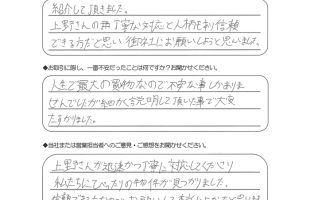 紹介して頂きました。
上野さんの丁寧な対応と人柄もあり信頼
できる方だと思い御社にお願いしようと思いました。
◆お取引に際し、一番不安だったことは何ですか？お聞かせください。
人生で最大の買物なので不安な事しかありま
せんでしたが細かく説明して頂いた事で大変
たすかりました。
◆当社または営業担当者へのご意見・ご感想をお聞かせください。
上野さんが迅速かつ丁寧に対応してくださり
私たちにぴったりの物件が見つかりました。